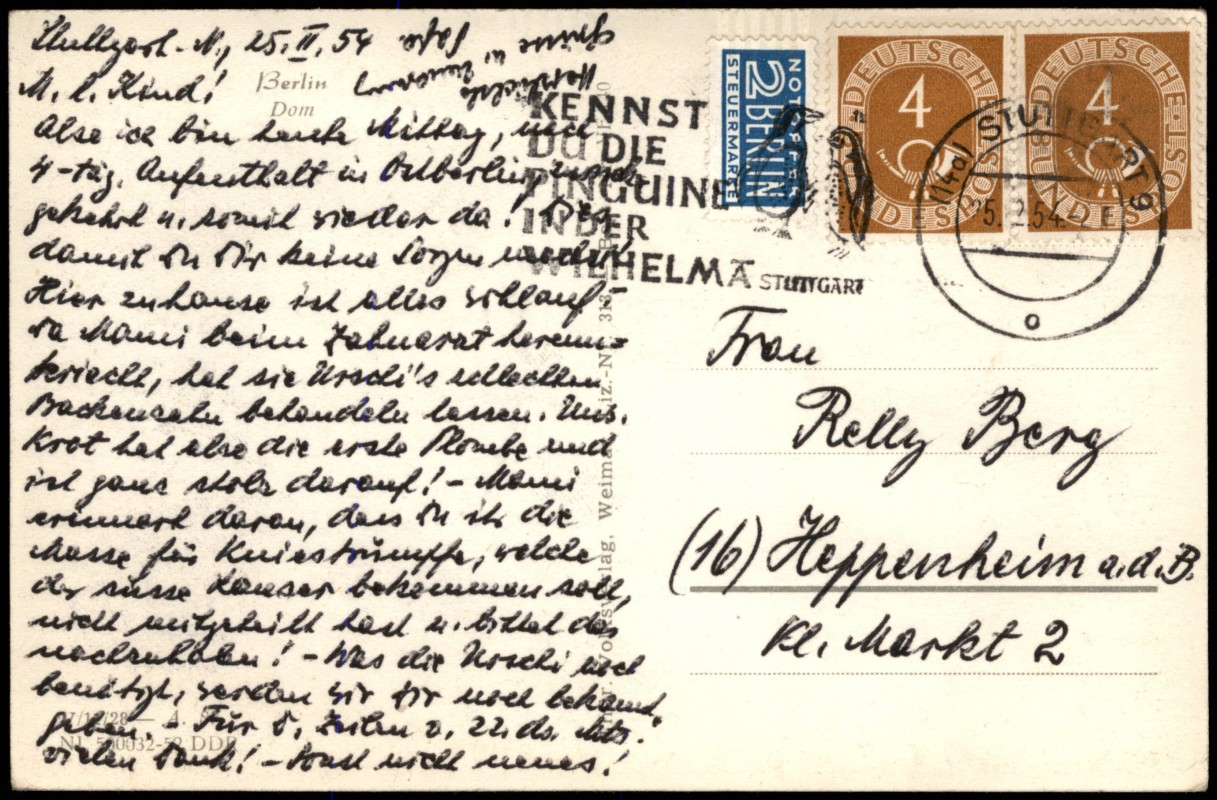 Stuttgart-N, 25.II.54
M. l. Kind!
Also ich bin heute Mittag, nach
4-täg. Aufenthalt in Ostberlin, zurück-
gekehrt u. somit wieder da! Dies
damit Du Dir keine Sorgen machst!
Hier zuhause ist alles schlauf
da Mami beim Zahnarzt herum=
kriecht, hat sie Urschi's schlechten
Backenzahn behandeln lassen. Uns.
Krot hat also die erste Plombe und
ist ganz stolz darauf! - Mami
erinnert daran, dass Du ihr die
Masse für Kniestrümpfe, welche
der süsse Hauser bekommen soll,
nicht mitgeteilt hast u. bittet das
nachzuholen! - Was die Urschi noch
benötigt, werden wir Dir noch bekannt
geben. - Für D. Zeilen v. 22. ds. Mts.
vielen Dank! - Sonst nicht neues!
Herzlichste
Grüsse u.
Papa
Berlin
Dom
KENNST
DU DIE
PINGUINE
IN DER
WILHELMA STUTTGART
NOTOPFER
2 BERLIN
STEUERMARKE
DEUTSCHE BUNDESPOST
4
DEUTSCHE BUNDESPOST
4
(14a) STUTTGART 9
25.2.54
E
o
Frau
Relly Berg
(16) Heppenheim a.d.B.
Kl. Markt 2
Volksverlag, Weimar
Liz.-N 3
NL 500032-52 DDR